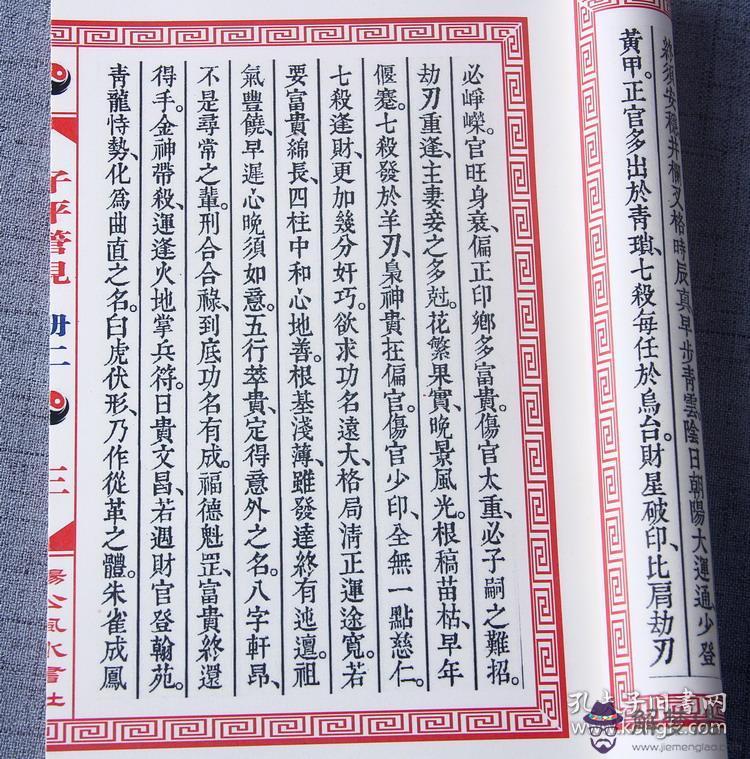 終須安穩井欄叉格時辰真早步靑雲陰日朝陽大運通、少登
黃甲。正官多出於靑瑣、七殺每任於烏台。財星破印、比肩劫刃
必崢嶸。官旺身衰、偏正印鄉多富貴。傷官太重、必子嗣之難招。
劫刃重逢、主妻妾之多尅。花繁果實、晚景風光。根稿苗枯、早年
偃蹇。七殺發於羊刃、梟神貴在偏官。傷官少印、全無一點慈仁。
七殺逢財、更加幾分奸巧。欲求功名遠大、格局淸正運途寬。若
要富貴綿長、四柱中和心地善。根基淺薄、雖發達終有迍邅。祖
氣豐饒、早遲心晚須如意。五行萃貴、定得意外之名。八字軒昂、
不是尋常之輩。刑合合祿、到底功名有成。福德魁罡、富貴終還
得手。金神帶殺、運逢火地掌兵符。日貴文昌、若遇財官登翰苑。
靑龍恃勢、化爲曲直之名。白虎伏形、乃作從革之體。朱雀成鳳
子平管見 册二 三 風水書社
孔夫子旧书网
www.jiemenglao.com